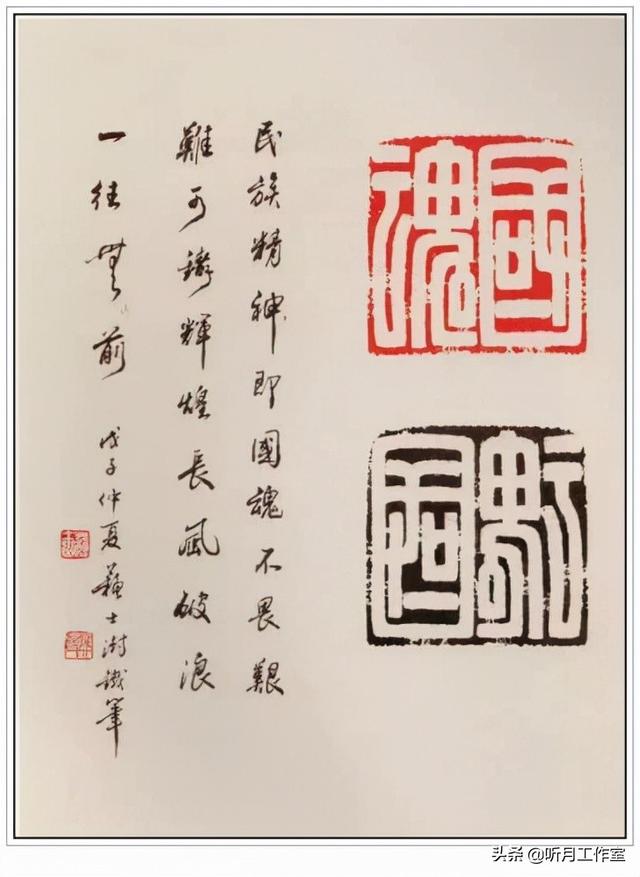 國魂
民族精神即國魂不畏艱
難可鑄輝煌長風破浪
一往無前
戊子仲夏蘇士澍鐵筆
头条 @听月工作室